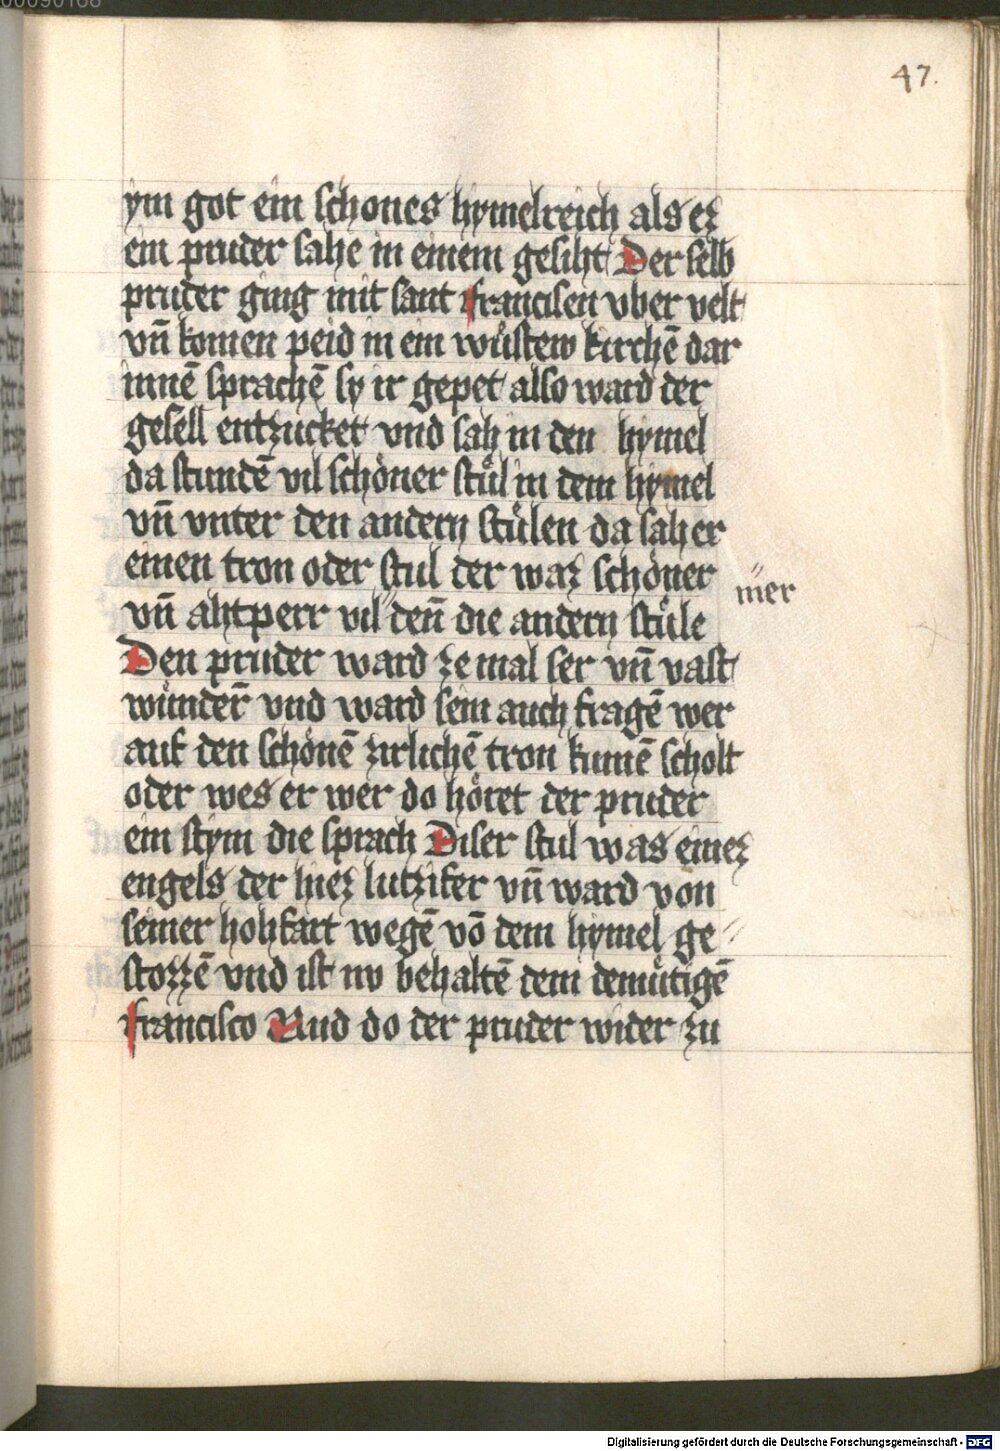 00090168
47.
ym got ein schones hymelreich als ez
ein pruder sahe in einem gesiht Der selb
pruder ging mit sant francisen vber velt
vn̄ komen peid in ein wu̎stew kirchē dar
innē sprachē sy ir gepet also ward der
gesell entzucket vnd sah in den hymel
da stundē vil scho̎ner stu̎l in dem hymel
vn̄ vnter den andern stu̎len da sah er
einen tron oder stul der waz scho̎ner
mer
vn̄ ahtperr vil " den̄ die andern stu̎le
Den pruder ward ze mal ser vn̄ vast
wu̎nder̄ vnd ward sein auch fragē wer
auf den scho̎nē zirlichē tron kumē scholt
oder wes er wer do ho̎ret der pruder
ein stym die sprach Diser stul was einez
engels der hiez lutzifer vn̄ ward von
seiner hohfart wegē vō dem hymel ge〃
stozzē vnd ist nv behaltē dem demu̎tigē
francisco Vnd do der pruder wider zu
Digitalisierung gefördert durch die Deutsche Forschungsgemeinschaft - DFG